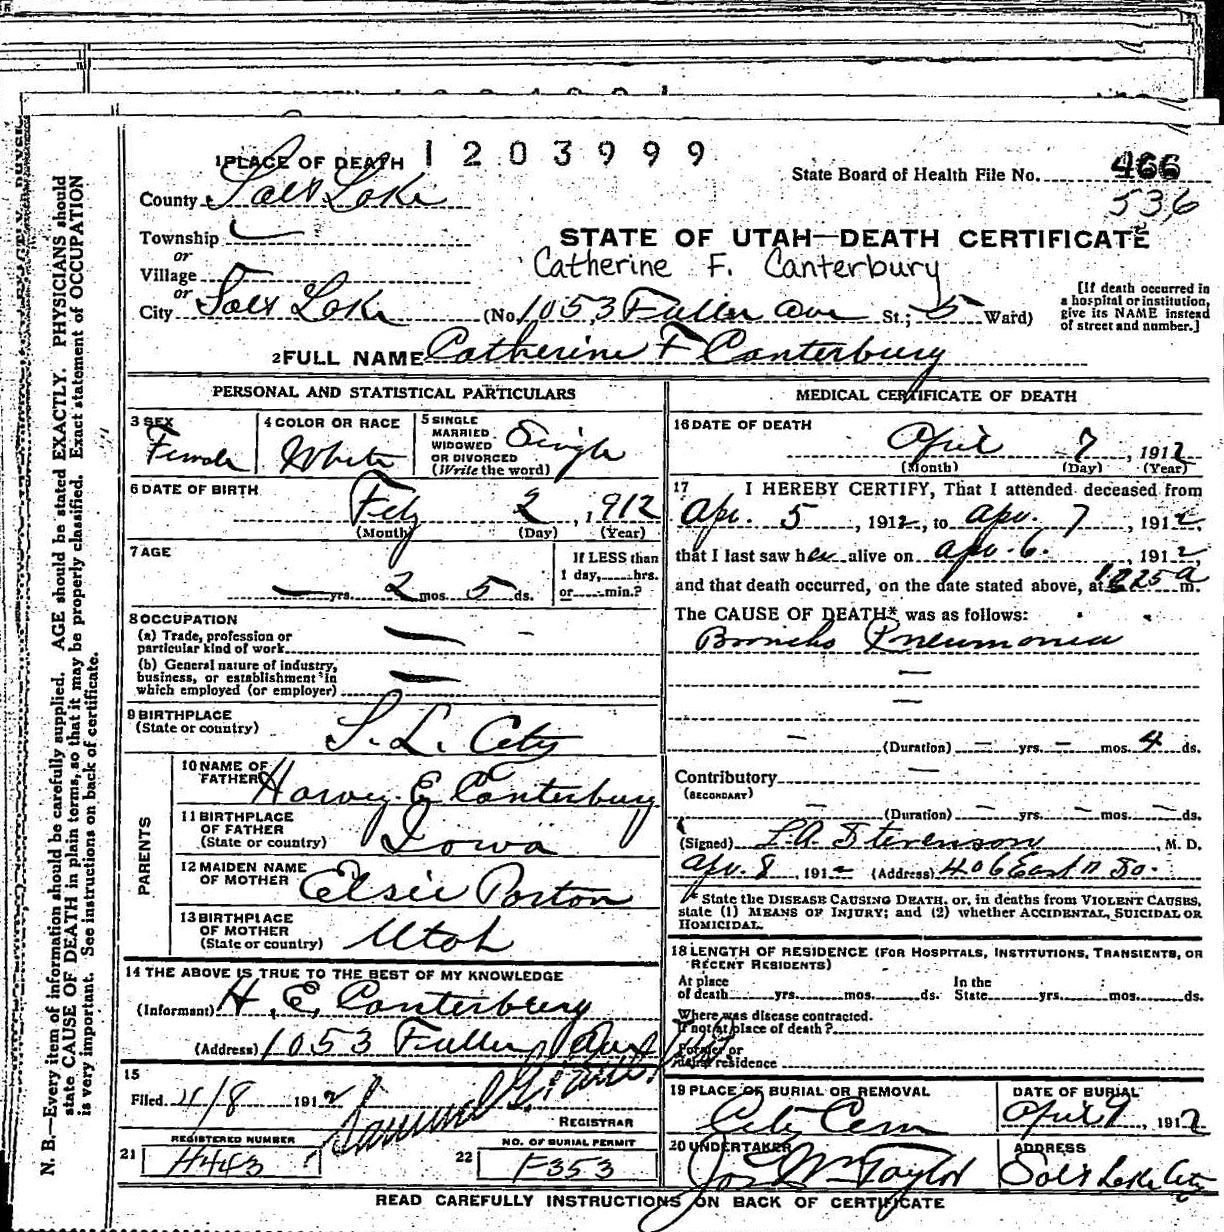 1 PLACE OF DEATH 1203999
State Board of Health File No. 466
536
County Salt Lake
Township
or
Village
or
City Salt Lake
STATE OF UTAH—DEATH CERTIFICATE
Catherine F. Canterbury
(No. 1053 Fuller Ave St.; 5 Ward)
[If death occurred in
a hospital or institution,
give its NAME instead
of street and number.]
2 FULL NAME Catherine F Canterbury
PERSONAL AND STATISTICAL PARTICULARS
3 SEX
Female
4 COLOR OR RACE
White
5 SINGLE
MARRIED
WIDOWED
OR DIVORCED
(Write the word)
Single
6 DATE OF BIRTH
Feby 2, 1912
(Month) (Day) (Year)
7 AGE
— yrs. 2 mos. 5 ds.
If LESS than
1 day, hrs.
or min.?
8 OCCUPATION
(a) Trade, profession or
particular kind of work —
(b) General nature of industry,
business, or establishment in
which employed (or employer) —
9 BIRTHPLACE
(State or country)
S. L. City
PARENTS
10 NAME OF
FATHER
Harvey E Canterbury
11 BIRTHPLACE
OF FATHER
(State or country)
Iowa
12 MAIDEN NAME
OF MOTHER
Elsie Porton
13 BIRTHPLACE
OF MOTHER
(State or country)
Utah
14 THE ABOVE IS TRUE TO THE BEST OF MY KNOWLEDGE
(Informant) H. E. Canterbury
(Address) 1053 Fuller Ave
15
Filed 4/8 1912
REGISTRAR
REGISTERED NUMBER
21 H443
NO. OF BURIAL PERMIT
22 F353
MEDICAL CERTIFICATE OF DEATH
16 DATE OF DEATH
April 7, 1912
(Month) (Day) (Year)
17 I HEREBY CERTIFY, That I attended deceased from
Apr. 5, 1912, to Apr. 7, 1912,
that I last saw her alive on Apr. 6, 1912
and that death occurred, on the date stated above, at 12 25 a m.
The CAUSE OF DEATH* was as follows:
Broncho Pneumonia
—
—
— (Duration) — yrs. — mos. 4 ds.
Contributory —
(SECONDARY)
— (Duration) — yrs. — mos. — ds.
(Signed) L.A. Stevenson, M. D.
Apr. 8, 1912 (Address) 406 East 11 So.
* State the DISEASE CAUSING DEATH, or, in deaths from VIOLENT CAUSES,
state (1) MEANS OF INJURY; and (2) whether ACCIDENTAL, SUICIDAL OR
HOMICIDAL.
18 LENGTH OF RESIDENCE (FOR HOSPITALS, INSTITUTIONS, TRANSIENTS, OR
RECENT RESIDENTS)
At place
of death yrs. mos. ds.
In the
State yrs. mos. ds.
Where was disease contracted.
If not at place of death?
Former or
usual residence
19 PLACE OF BURIAL OR REMOVAL
City Cem
DATE OF BURIAL
April 9, 1912
20 UNDERTAKER
Jos Wm Taylor
ADDRESS
Salt Lake City
READ CAREFULLY INSTRUCTIONS ON BACK OF CERTIFICATE
N. B.—Every item of information should be carefully supplied. AGE should be stated EXACTLY. PHYSICIANS should
state CAUSE OF DEATH in plain terms, so that it may be properly classified. Exact statement of OCCUPATION
is very important. See instructions on back of certificate.